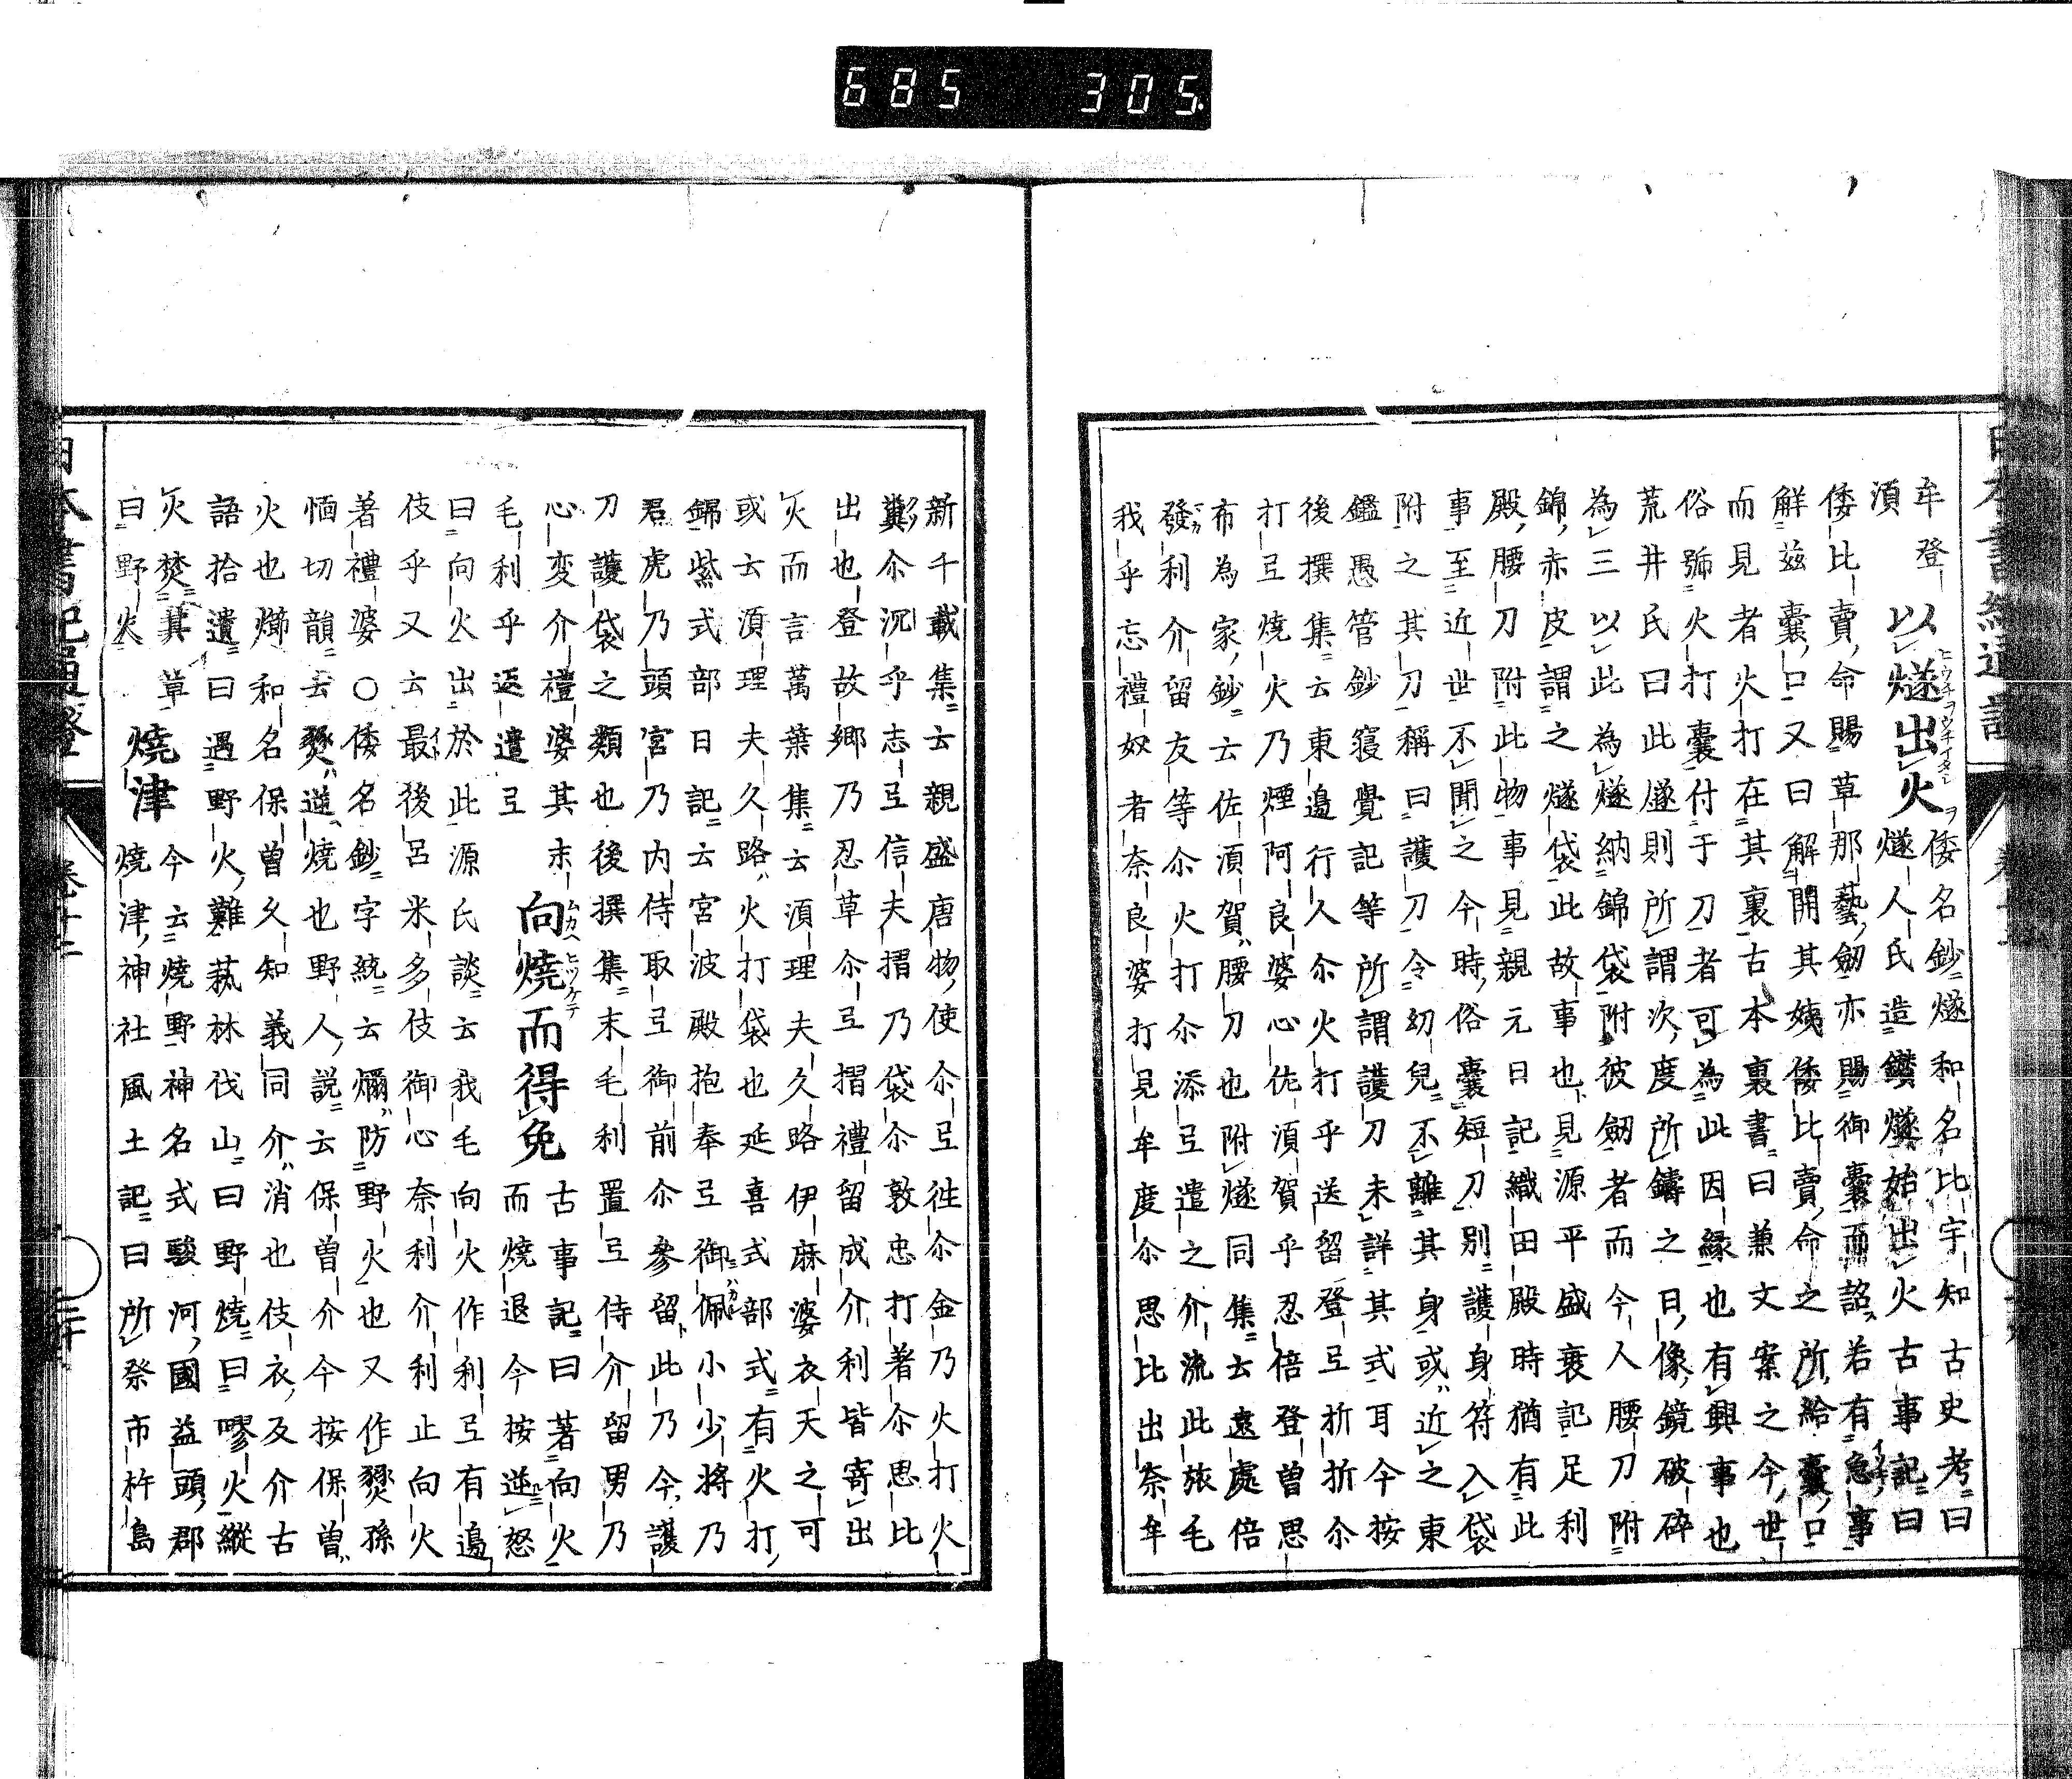 685 305.
牟登 以燧出火 倭名鈔燧和名比宇知古史考曰
須 燧人氏造鑽燧始出火古事記曰
倭比賣命賜草那藝劒亦賜御囊而詔若有急事
解茲囊口又曰解開其姨倭比賣命之所給囊口
而見者火打在其裏古本裏書曰兼文案之今世
俗號火打囊付于刀者可為此因緣也有興事也
荒井氏曰此燧則所謂次度所鑄之日像鏡破碎
為三以此為燧納錦袋附彼劒者而今人腰刀附
錦赤皮謂之燧袋此故事也見源平盛衰記足利
殿腰刀附此物事見親元日記織田殿時猶有此
事至近世不聞之今時俗囊短刀別護身符入袋
附之其刀稱曰護刀令幼兒不離其身或近之東
鑑愚管鈔寤覺記等所謂護刀未詳其式耳今按
後撰集云東邊行人尓火打乎送留登弖折折尓
打弖燒火乃煙阿良婆心佐須賀乎忍倍登曾思
布為家鈔云佐須賀腰刀也附燧同集云遠處倍
發利介留友等尓火打尓添弖遣之介流此旅毛
我乎忘禮奴者奈良婆打見牟度尓思比出奈牟
新千載集云親盛唐物使尓弖往尓金乃火打火
糞尓沉乎志弖信夫摺乃袋尓敦忠打著尓思比
出也登故鄉乃忍草尓弖摺禮留成介利皆寄出
火而言萬葉集云須理夫久路伊麻婆衣天之可
或云須理夫久路火打袋也延喜式部式有火打
錦紫式部日記云宮波殿抱奉弖御佩小少將乃
君虎乃頭宮乃内侍取弖御前尓參留此乃今護
刀護袋之類也後撰集末毛利置弖侍介留男乃
心変介禮婆其末 向燒而得免 古事記曰著向火
毛利乎返遣弖 而燒退今按逆怒
曰向火出於此源氏談云我毛向火作利弖有邉
伎乎又云最後呂米多伎御心奈利介利止向火
著禮婆○倭名鈔字統云爤防野火也又作燹孫
愐切韻云燹逆燒也野人說云保曾介今按保曾
火也爤和名保曾久知義同介消也伎衣及介古
語拾遺曰遇野火難蓺林伐山曰野燒曰嘐火縱
火焚其草 燒津 今云燒野神名式駿河國益頭郡
曰野火 燒津神社風土記曰所祭市杵島